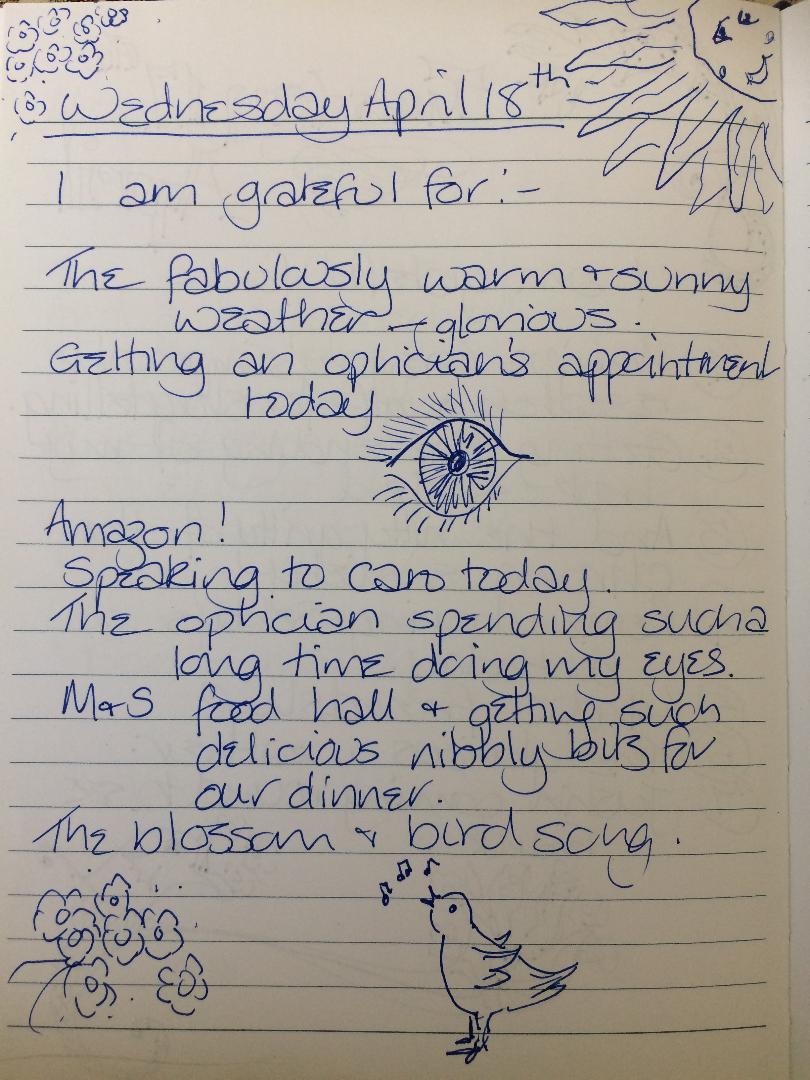 Wednesday April 18th
I am grateful for:-
The fabulously warm & sunny
weather - glorious.
Getting an optician's appointment
today
Amazon!
Speaking to Caro today.
The optician spending such a
long time doing my eyes.
M&S food hall & getting such
delicious nibbly bits for
our dinner.
The blossom & bird song.